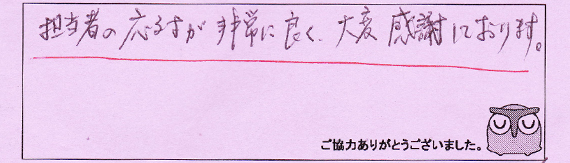 担当者の応対が非常に良く、大変感謝しております。
ご協力ありがとうございました。